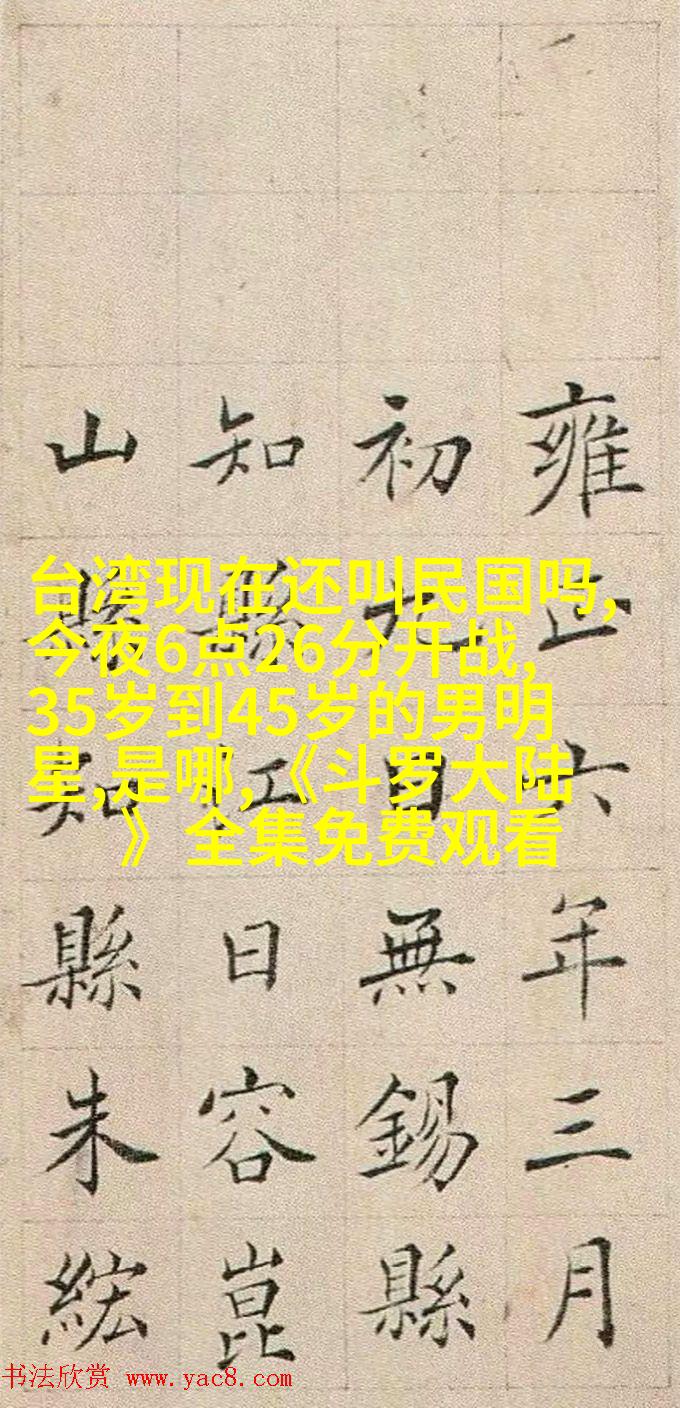 雍正六年三月
初日無錫縣
知縣江日容崑
山縣知縣朱紘
台湾现在还叫民国吗,
今夜6点26分开战,
35岁到45岁的男明
星,是哪,《斗罗大陆
》 全集免费观看
书法欣赏 www.yac8.com